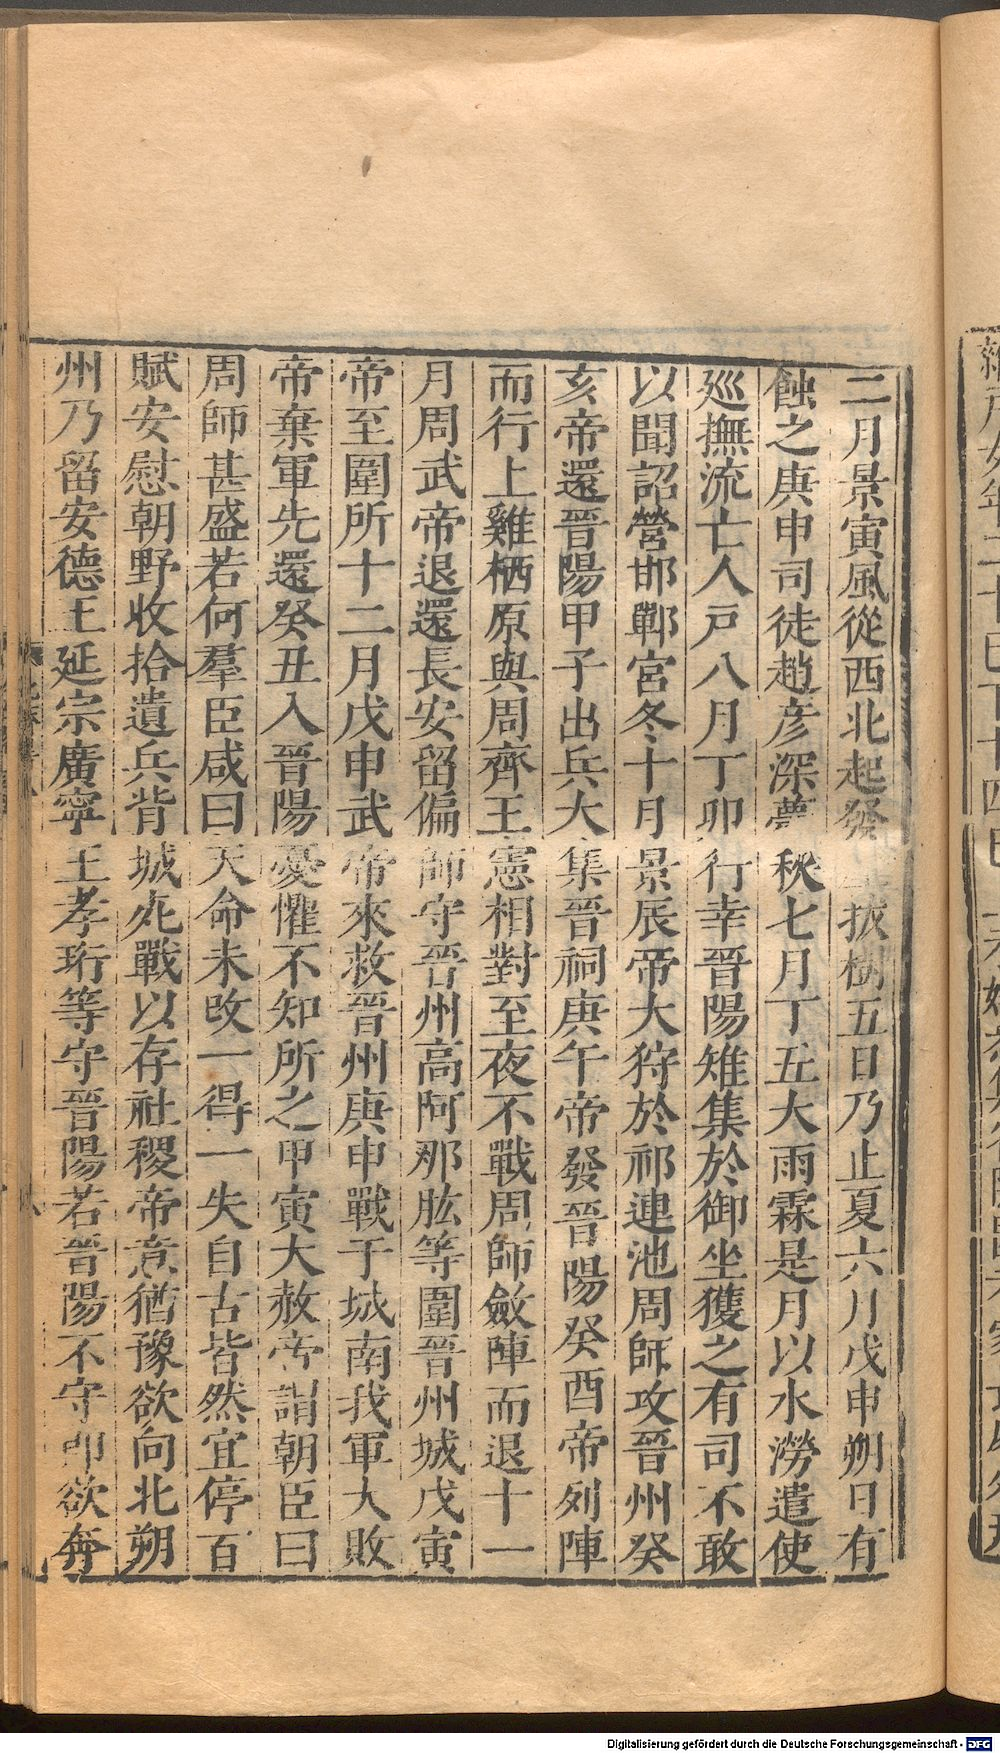 二月景寅風從西北起發拔樹五日乃止夏六月戊申朔日有
蝕之庚申司徒趙彦深薨秋七月丁丑大雨霖是月以水澇遣使
廵撫流亡人戸八月丁卯行幸晉陽雉集於御坐獲之有司不敢
以聞詔營邯鄲宮冬十月景辰帝大狩於祁連池周師攻晉州癸
亥帝還晉陽甲子出兵大集晉祠庚午帝發晉陽癸酉帝列陣
而行上雞栖原與周齊王憲相對至夜不戰周師斂陣而退十一
月周武帝退還長安留偏師守晉州高阿那肱等圍晉州城戊寅
帝至圍所十二月戊申武帝來救晉州庚申戰于城南我軍大敗
帝棄軍先還癸丑入晉陽憂懼不知所之甲寅大赦帝謂朝臣曰
周師甚盛若何羣臣咸曰天命未改一得一失自古皆然宜停百
賦安慰朝野收拾遺兵背城死戰以存社稷帝意猶豫欲向北朔
州乃留安德王延宗廣寧王孝珩等守晉陽若晉陽不守即欲奔
Digitalisierung gefördert durch die Deutsche Forschungsgemeinschaft - DFG